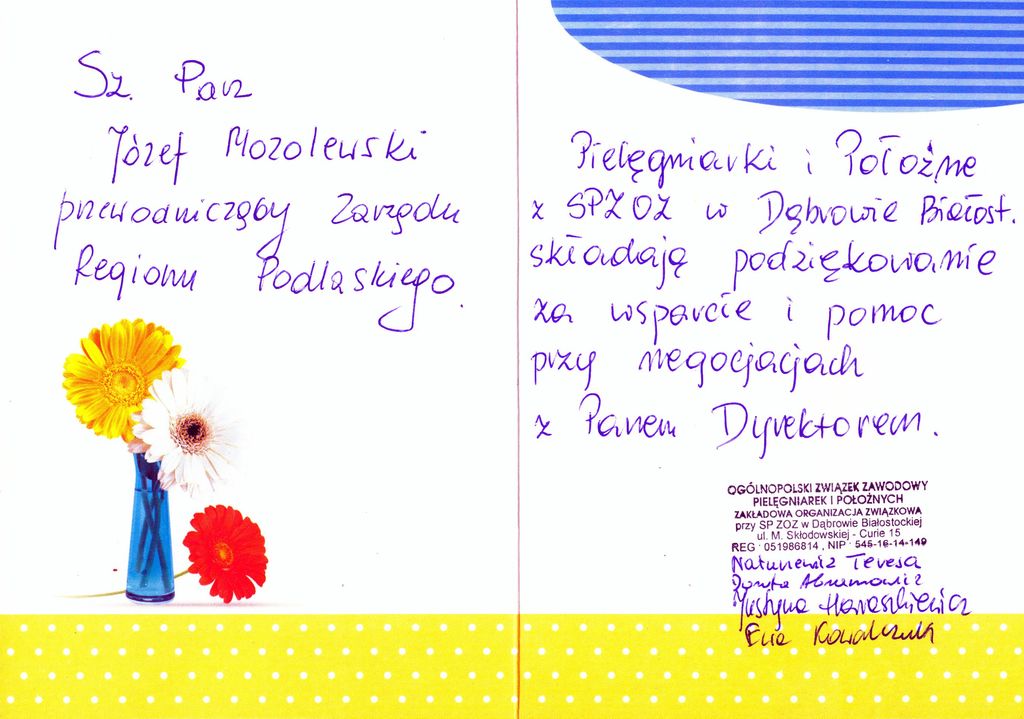 Sz. Pan
Józef Mozolewski
przewodniczący Zarządu
Regionu Podlaskiego.
Pielęgniarki i Położne
z SPZOZ w Dąbrowie Białost.
składają podziękowanie
za wsparcie i pomoc
przy negocjacjach
z Panem Dyrektorem.
OGÓLNOPOLSKI ZWIĄZEK ZAWODOWY
PIELĘGNIAREK I POŁOŻNYCH
ZAKŁADOWA ORGANIZACJA ZWIĄZKOWA
przy SP ZOZ w Dąbrowie Białostockiej
ul. M. Skłodowskiej - Curie 15
REG 051986814, NIP 545-16-14-149
Natuniewicz Teresa
Dorota Abramowicz
Justyna Haraszkiewicz
Ewa Kowalczuk